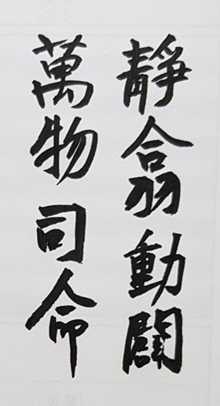 靜翕動闢
萬物司命